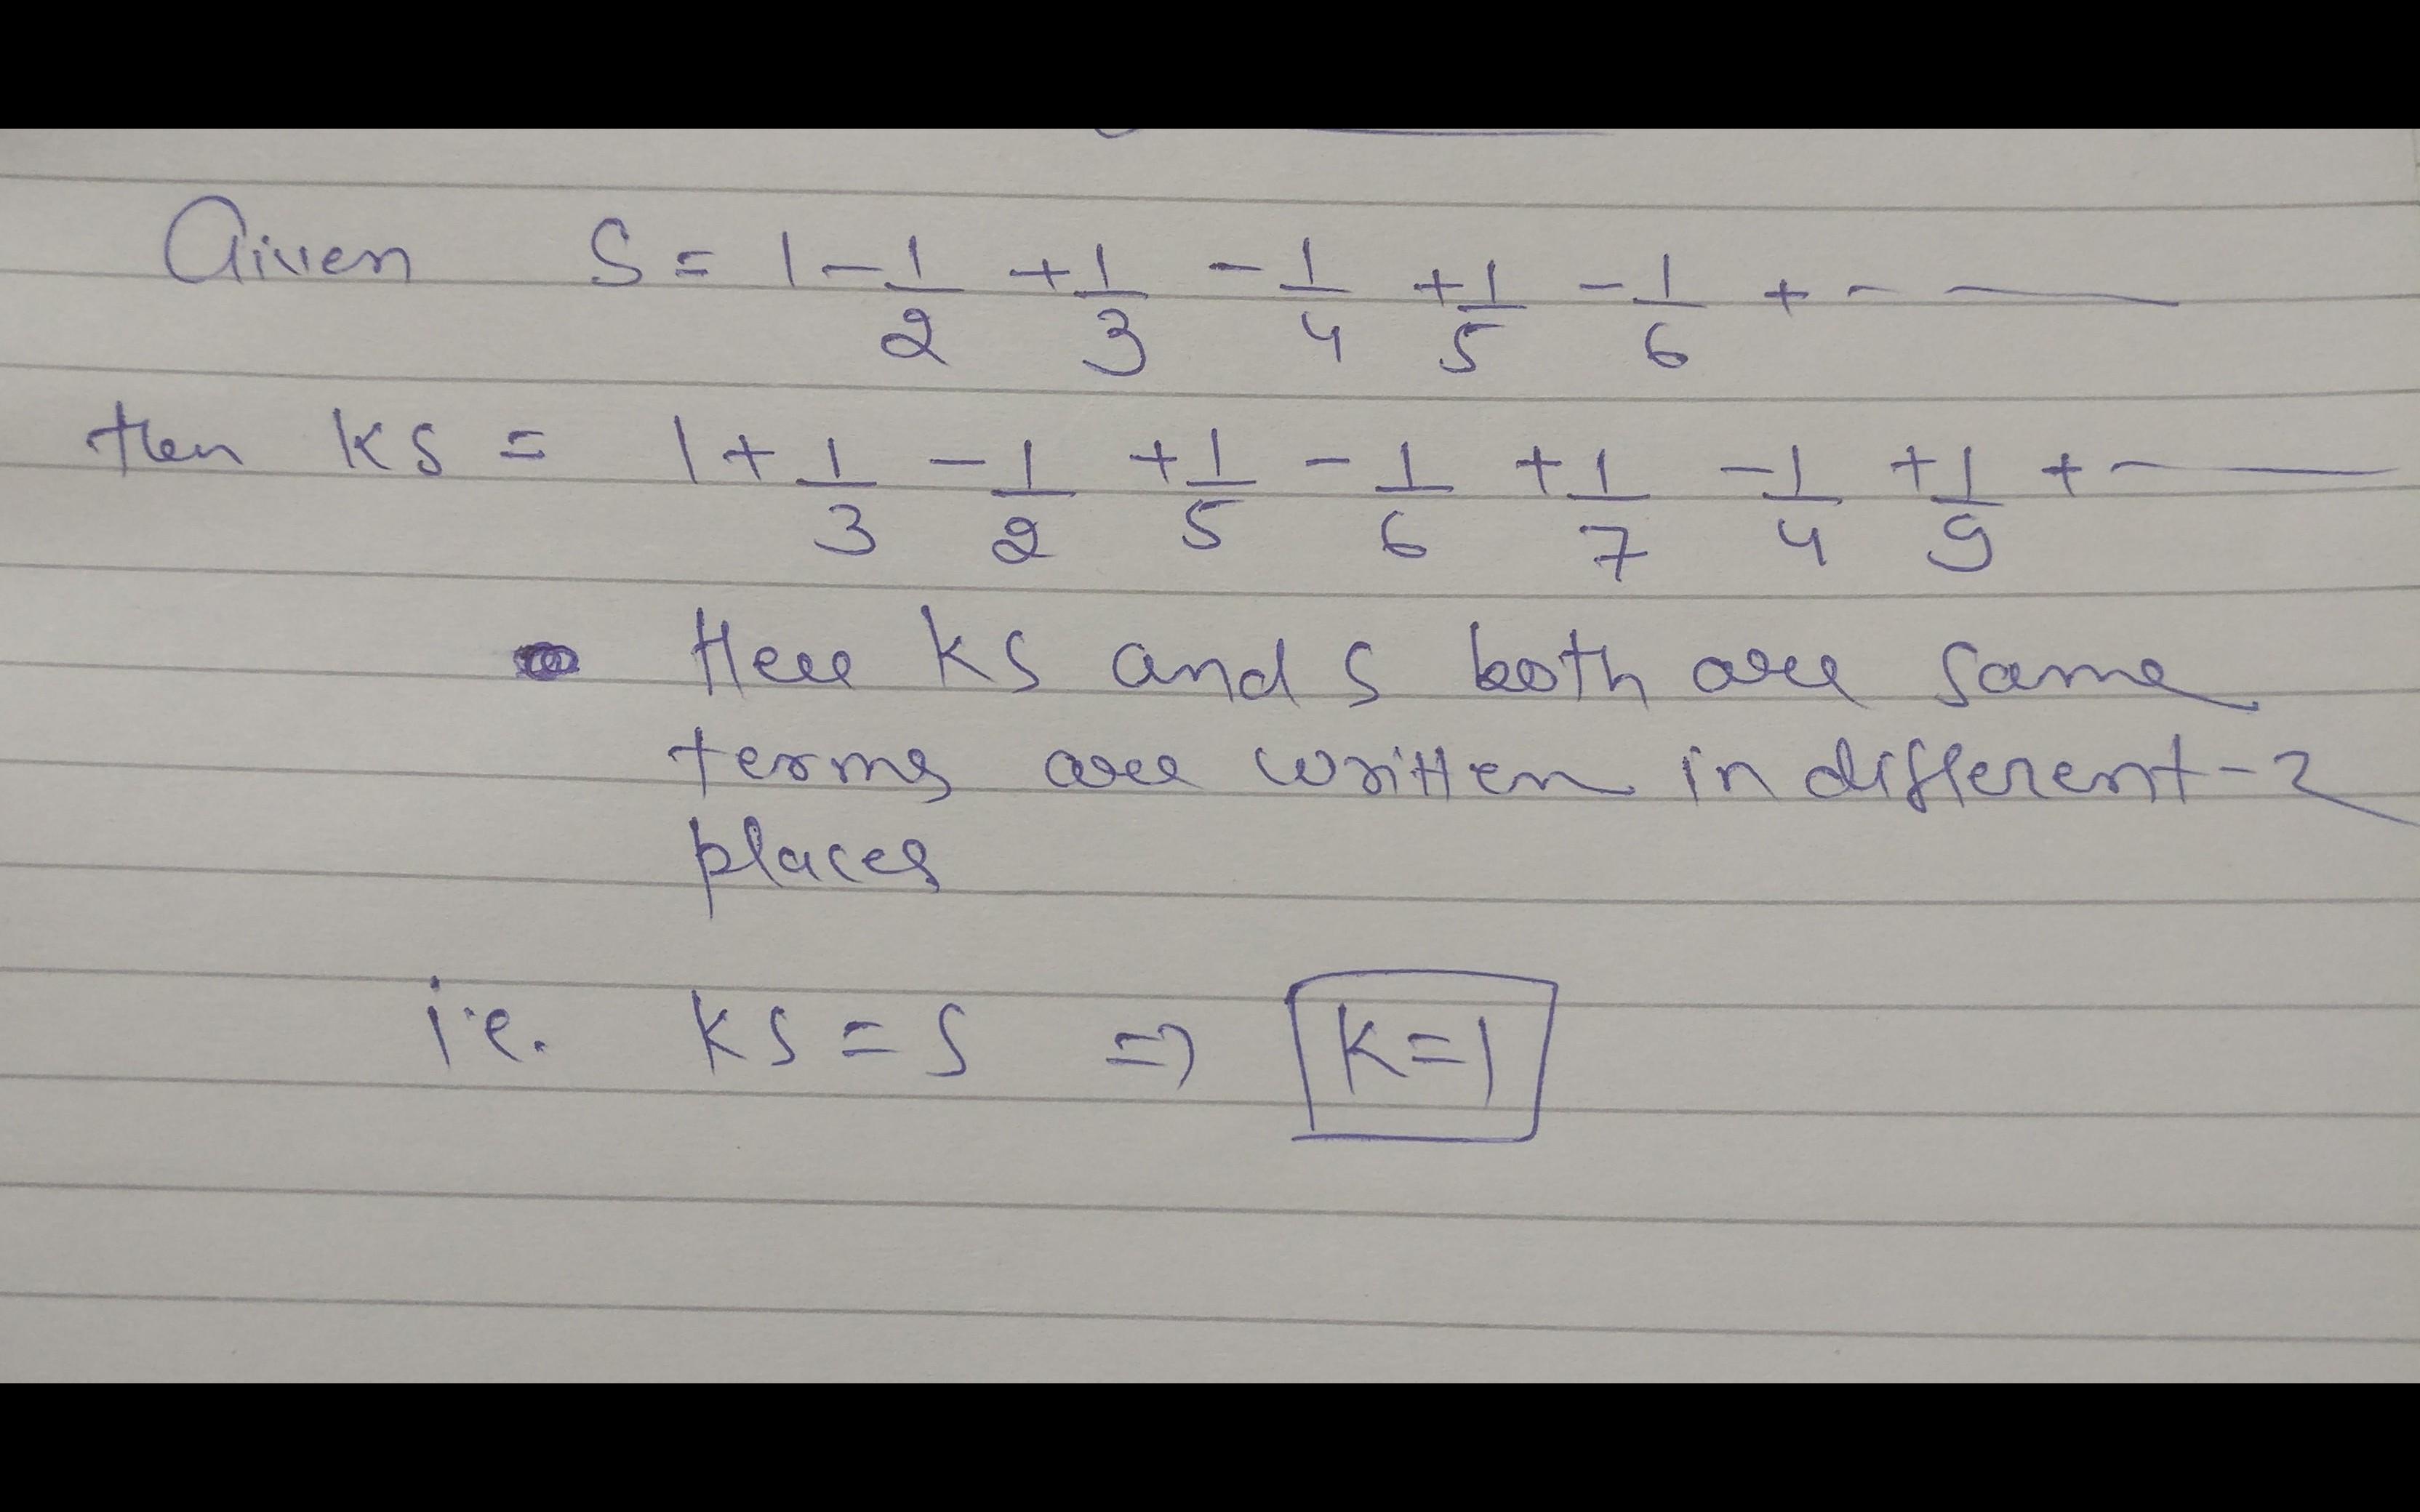 Given S = 1 - 1/2 + 1/3 - 1/4 + 1/5 - 1/6 + - —
then KS = 1 + 1/3 - 1/2 + 1/5 - 1/6 + 1/7 - 1/4 + 1/9 + - —
Here KS and S both are same
terms are written in different-2
places
i.e. KS = S => K=1